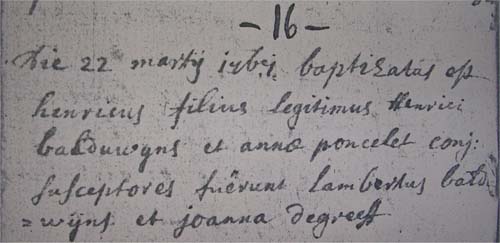 - 16 -
Die 22 martij 1767 baptizatus est
henricus filius legitimus henrici
balduwyns et annæ poncelet conj:
susceptores fuêrunt lambertus bald
=wijns et joanna degreeff